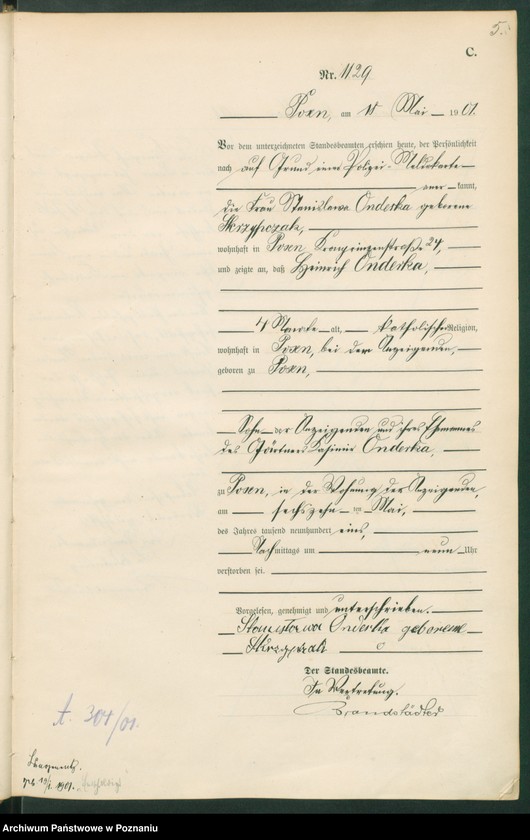 5.
C.
Nr. 1129
Posen, am Mai 1901.
Vor dem unterzeichneten Standesbeamten erschien heute, der Persönlichkeit
nach auf Grund einer Polizei-Meldekarte
aner kannt,
die Frau Stanislawa Onderka geborene
Skrzypczak,
wohnhaft in Posen, Kronprinzenstraße 24,
und zeigte an, daß Heinrich Onderka,
4 alt, katholischer Religion,
wohnhaft in Posen, bei der Anzeigenden,
geboren zu Posen,
Sohn der Anzeigenden und ihres Ehemannes
des Gärtners Kasimir Onderka,
zu Posen, in der Wohnung der Anzeigenden,
am sechszehn ten Mai,
des Jahres tausend neunhundert eins,
Nach mittags um neun Uhr
verstorben sei.
Vorgelesen, genehmigt und unterschrieben.
Stanisława Onderka geborene
Skrzypczak
Der Standesbeamte.
In Vertretung.
Brandstädter
A. 304/01.
1901.
Archiwum Państwowe w Poznaniu